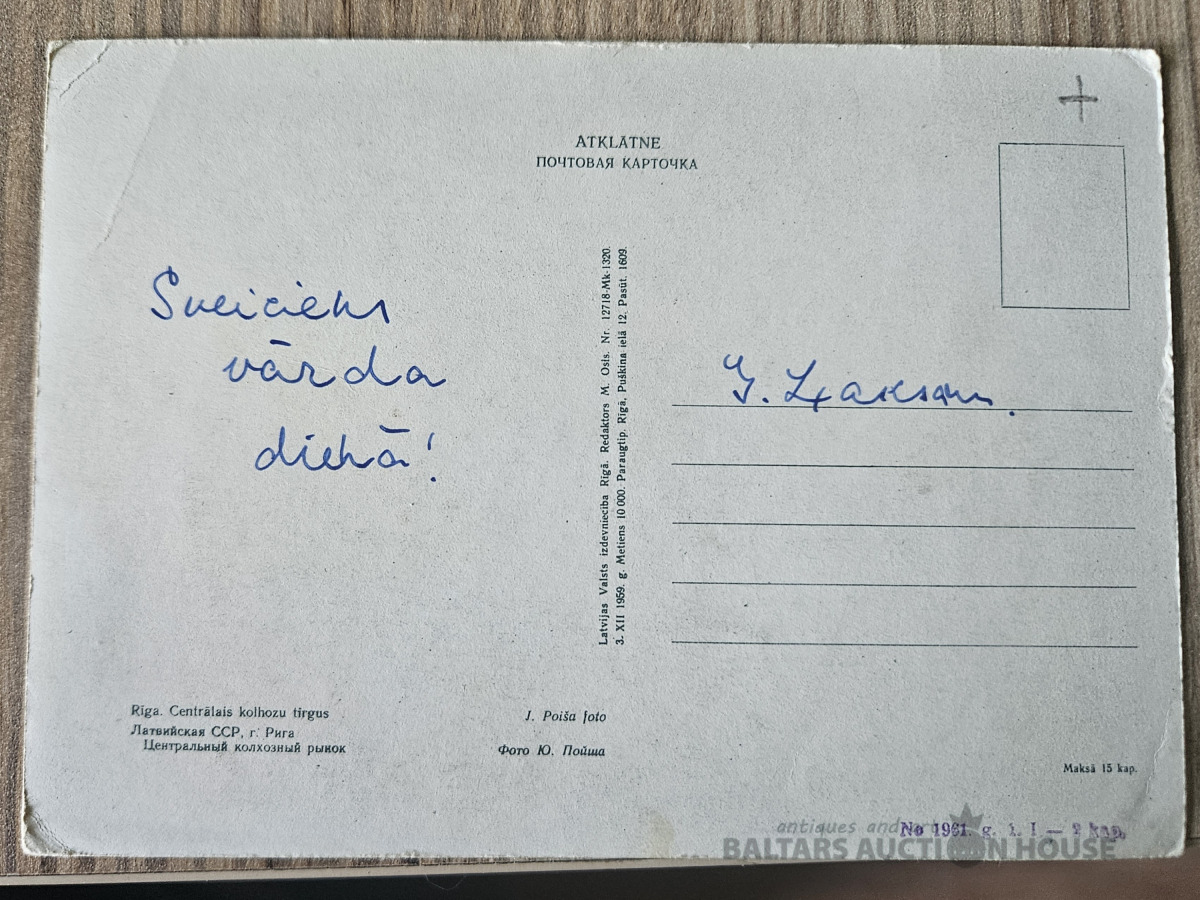 ATKLĀTNE
ПОЧТОВАЯ КАРТОЧКА
Sveiciens
vārda
dienā!
Latvijas Valsts izdevniecība Rīgā. Redaktors M. Osis. Nr. 12718-Mk-1320.
3. XII 1959. g. Metiens 10 000. Paraugtip. Rīgā, Puškina ielā 12. Pasūt. 1609.
Rīga. Centrālais kolhozu tirgus
Латвийская ССР, г. Рига
Центральный колхозный рынок
J. Poiša foto
Фото Ю. Пойша
Maksā 15 kap.
No 1961. g. 1. I — 2 kap.
antiques and art
BALTARS AUCTION HOUSE